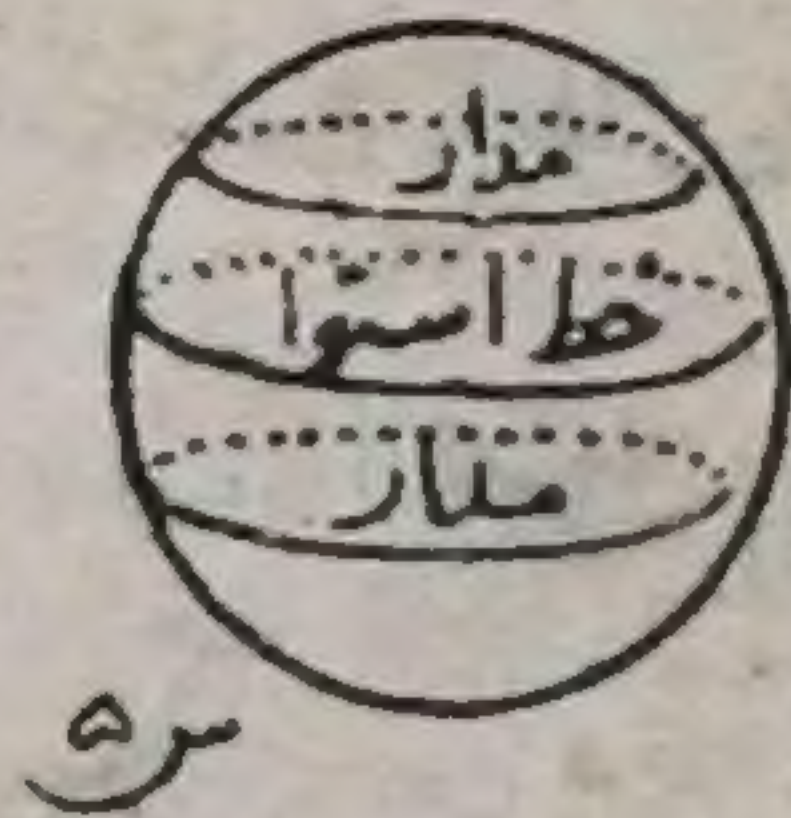 مدار
خط استوا
مدار
س ۵